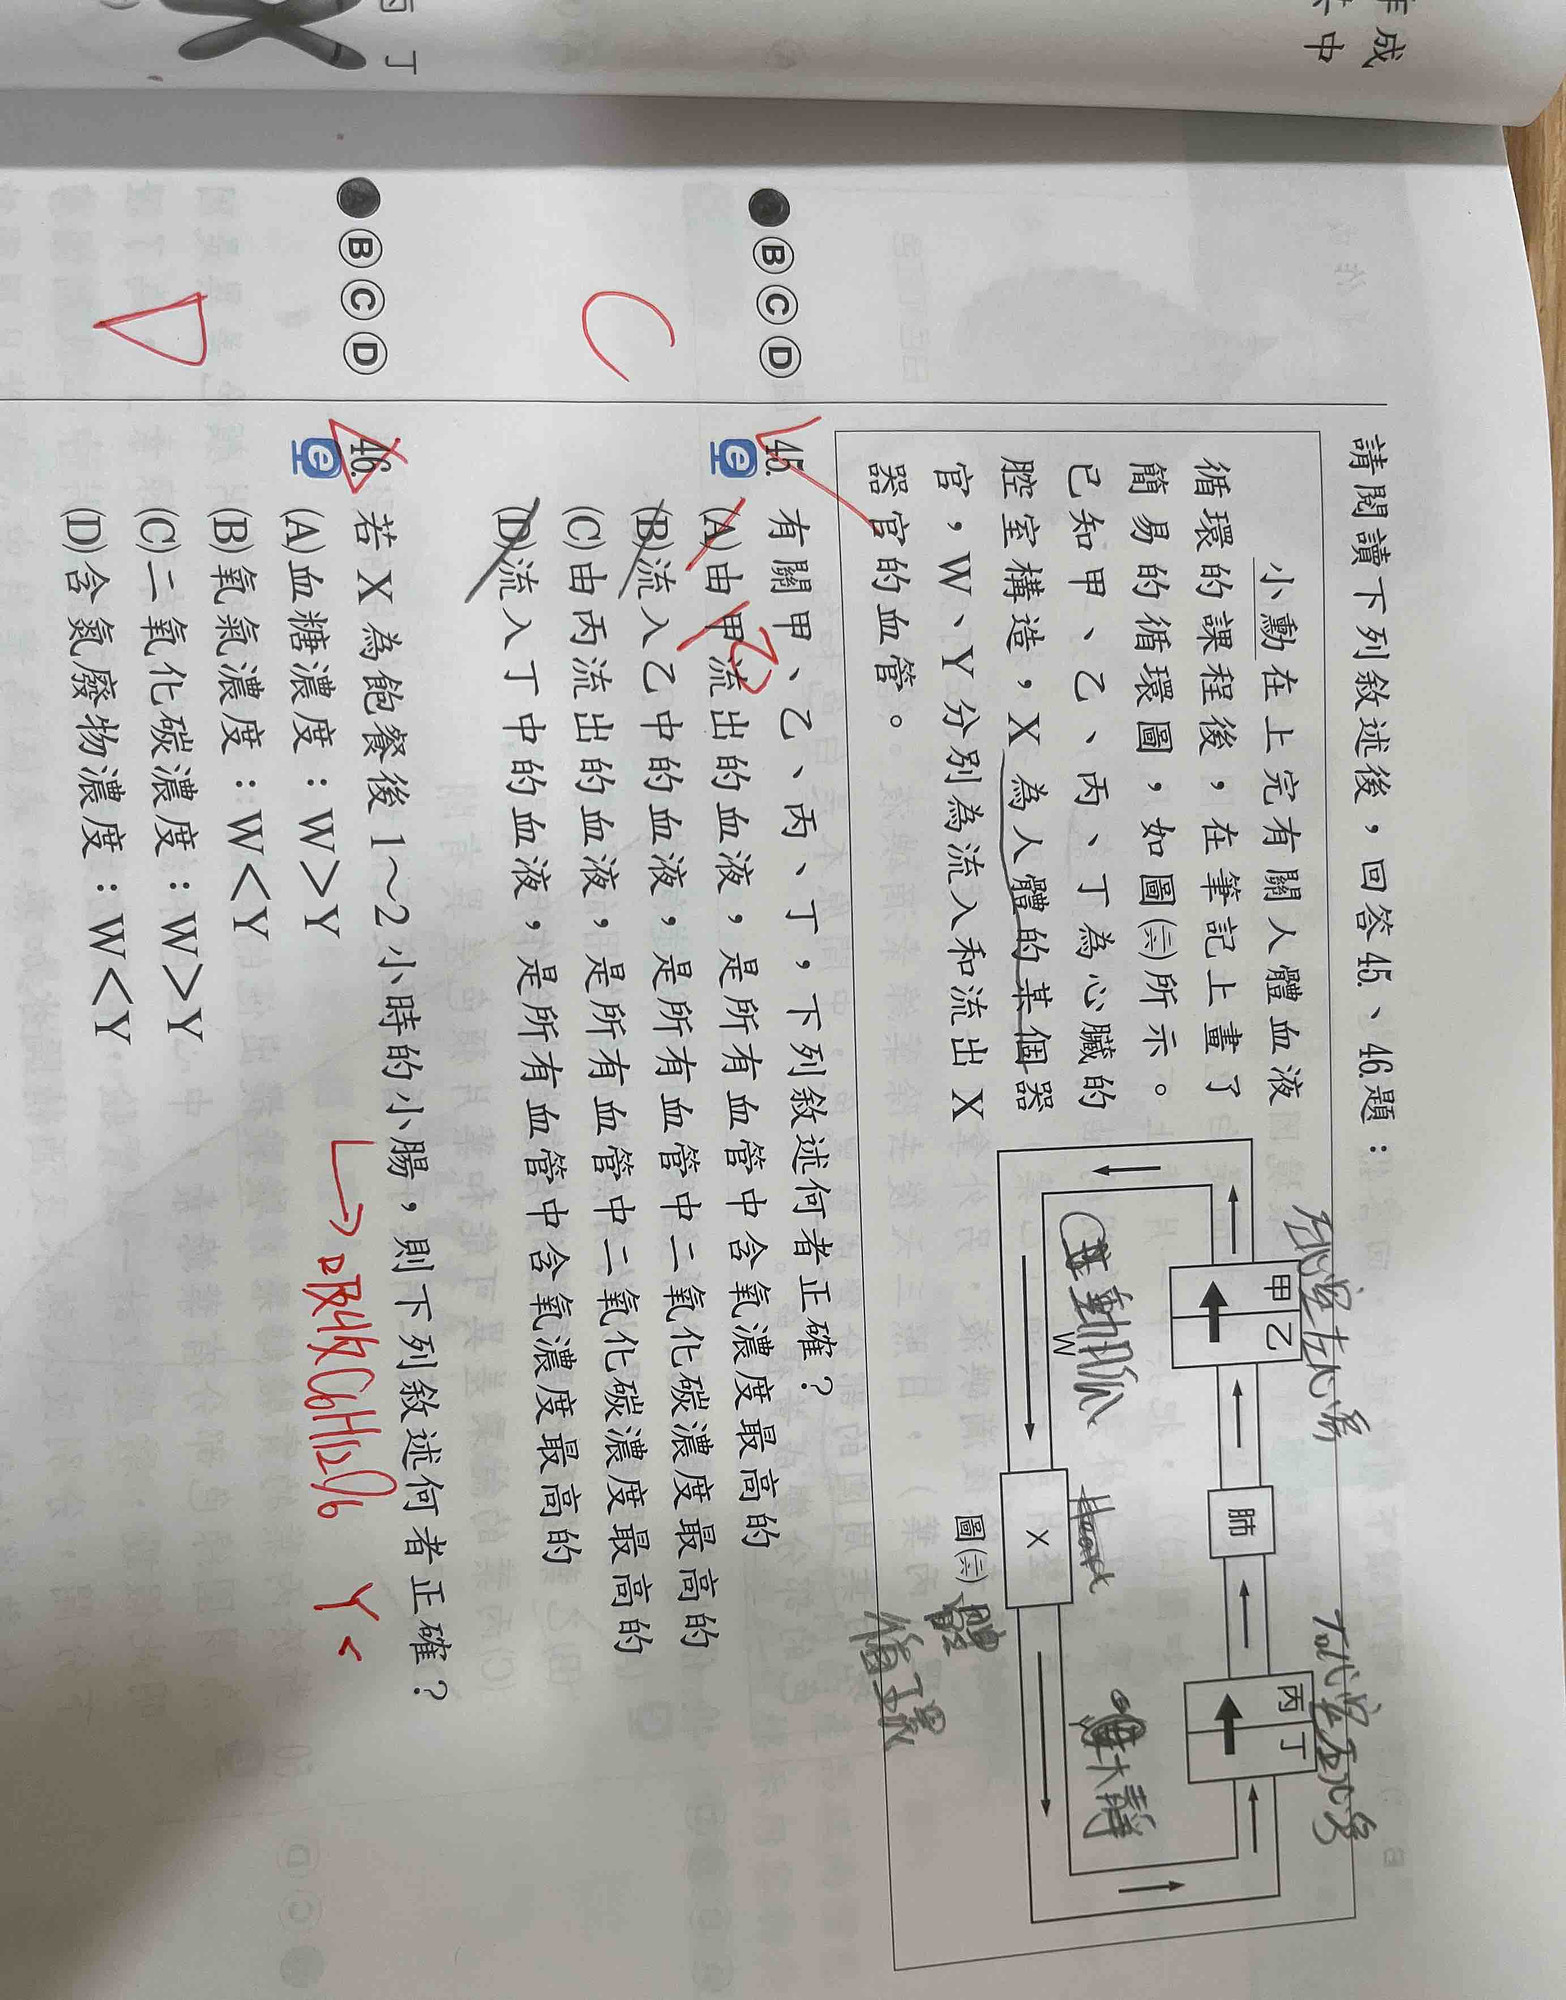 成
中
丙 丁
請閱讀下列敘述後，回答45.、46.題：
小勳在上完有關人體血液
循環的課程後，在筆記上畫了
簡易的循環圖，如圖㈢所示。
已知甲、乙、丙、丁為心臟的
腔室構造，X 為人體的某個器
官，W、Y 分別為流入和流出 X
器官的血管。
甲 乙
肺
丙 丁
W
X
圖㈢
Heart
主動脈
Ⓑ Ⓒ Ⓓ
C
45. 有關甲、乙、丙、丁，下列敘述何者正確？
(A)由甲流出的血液，是所有血管中含氧濃度最高的
乙
(B)流入乙中的血液，是所有血管中二氧化碳濃度最高的
(C)由丙流出的血液，是所有血管中二氧化碳濃度最高的
(D)流入丁中的血液，是所有血管中含氧濃度最高的
Ⓑ Ⓒ Ⓓ
D
46. 若 X 為飽餐後 1～2 小時的小腸，則下列敘述何者正確？
吸收C6H12O6 Y <
(A)血糖濃度：W＞Y
(B)氧氣濃度：W＜Y
(C)二氧化碳濃度：W＞Y
(D)含氮廢物濃度：W＜Y